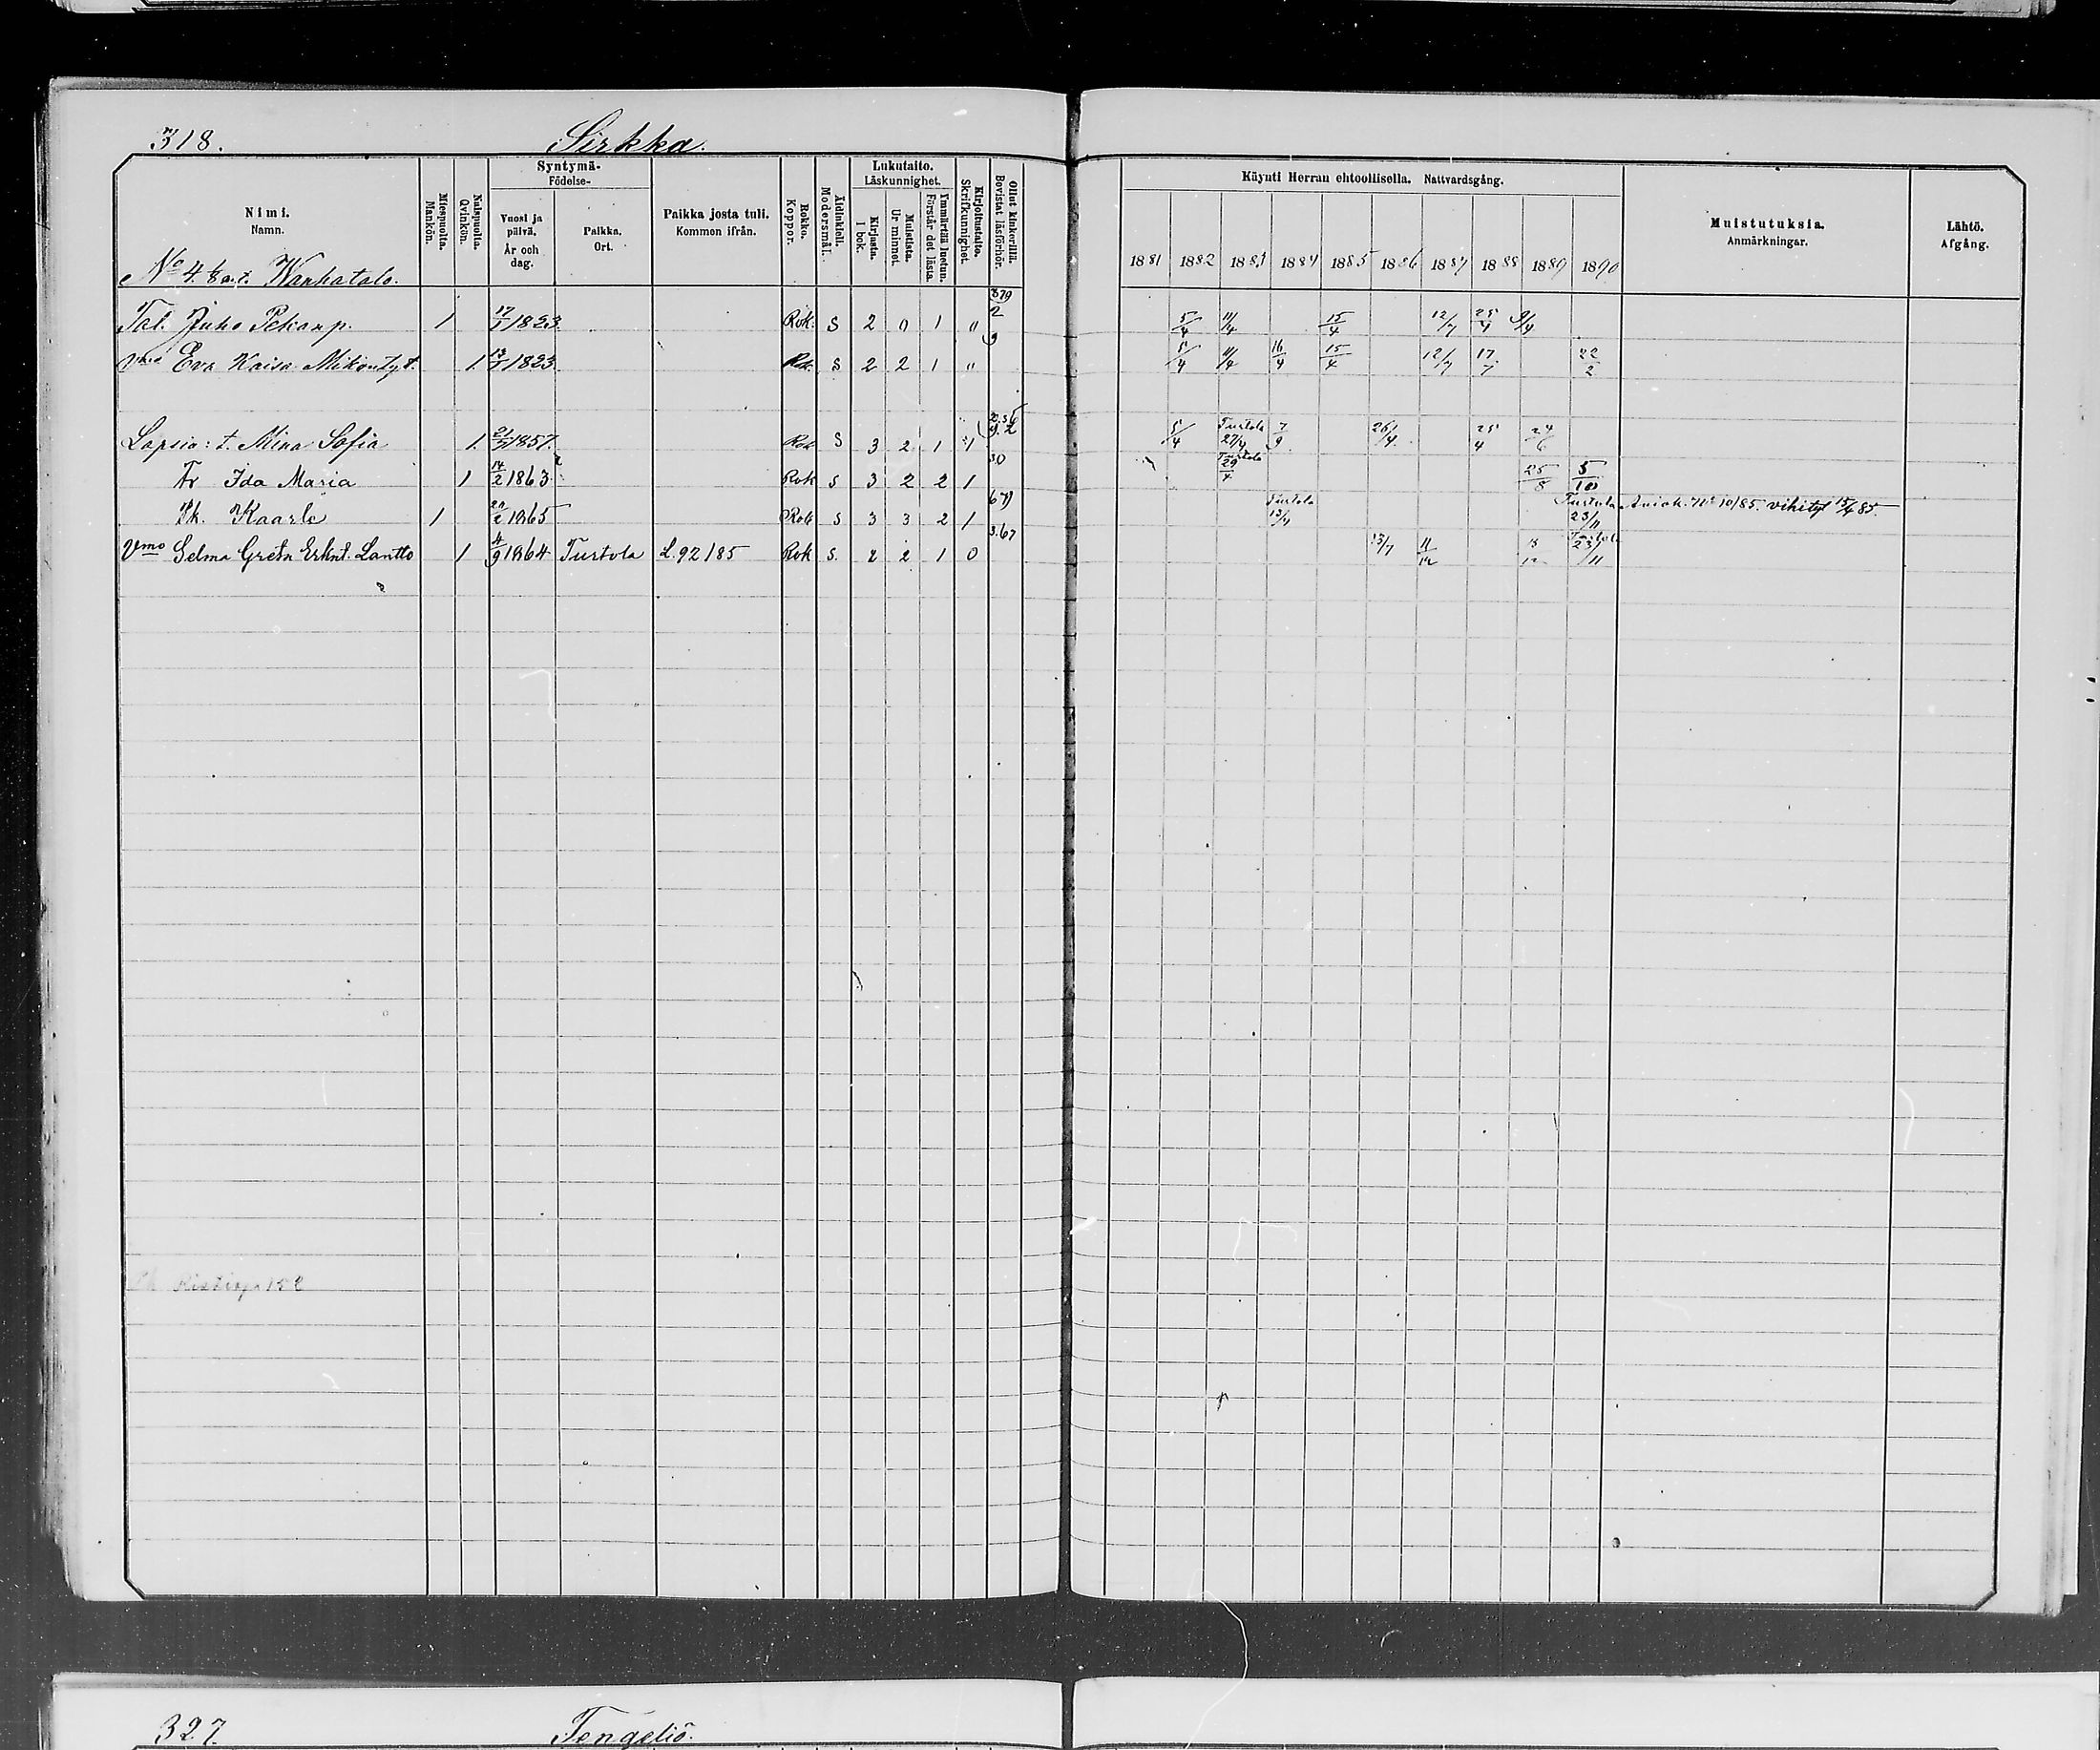 318. Sirkka.
Syntymä- Födelse-
Lukutaito. Läskunnighet.
Käynti Herran ehtoollisella. Nattvardsgång.
Nimi. Namn.
Miespuolia. Mankön.
Naispuolia. Qvinkön.
Vuosi ja päivä. År och dag.
Paikka. Ort.
Paikka josta tuli. Kommen ifrån.
Rokko. Koppor.
Äidinkieli. Modersmål.
Kirjasta. I bok.
Muistista. Ur minnet.
Ymmärtää luetun. Förstår det lästa.
Kirjoitustaito. Skrifkunnighet.
Ollut kinkerillä. Bevistat läsförhör.
Muistutuksia. Anmärkningar.
Lähtö. Afgång.
1881 1882 1883 1884 1885 1886 1887 1888 1889 1890
No 4. Wanhatalo.
Tal. Juho Pekanp. 1 1823 Rok. S 2 0 1 " 5/4 11/4 15/4 12/7 25/4
Vmo Eva Kaisa Mikontyt. 1 1823 Rok. S 2 2 1 " 5/4 11/4 16/4 15/4 12/7 17/7 22/2
Lapsia: t. Mina Sofia 1 1857 Rok S 3 2 1 5/4 Turtola 27/4 7/9 26/4 25/4 24/6
Tr Ida Maria 1 14/2 1863 Rok S 3 2 2 1 Turtola 29/4 25/8 5/10
Pk. Kaarle 1 1865 Rok S 3 3 2 1 Turtola 13/4 Turtola 23/11 Aviok. No 10/85. vihityt 85.
Vmo Selma Greta Erknt. Lantto 1 4/9 1864 Turtola L. 92/85 Rok S. 2 2 1 0 3.67 13/7 11/12 Turtola 23/11
327. Tengeliö.